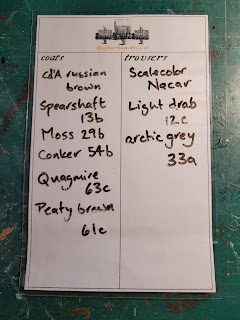 coats
cd'A russian
brown
Spearshaft
13b
Moss 29b
Conker 54b
Quagmire
63c
Peaty brown
61c
trousers
Scalecolor
Nacar
Light drab
12c
arctic grey
33a